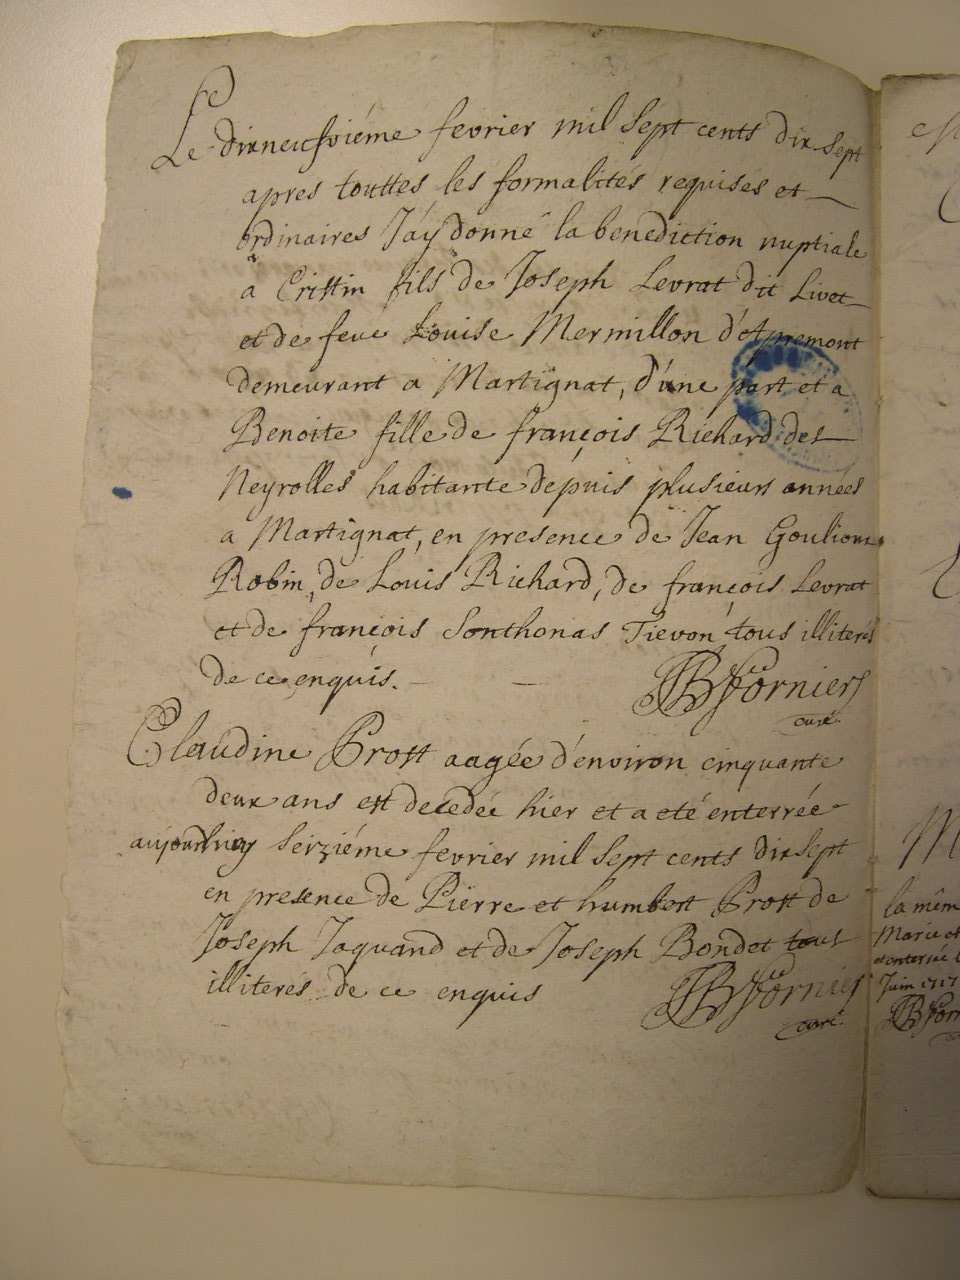 Le dixneufviéme fevrier mil sept cents dix sept
apres touttes les formalités requises et
ordinaires J'ay donné la benediction nuptiale
a Cristin fils de Joseph Levrat dit Livet
et de feue Louise Mermillon d'Apremont
demeurant a Martignat, d'une part et a
Benoite fille de françois Richard des
Neyrolles habitante depuis plusieurs années
a Martignat, en presence de Jean Goulioux
Robin, de Louis Richard, de françois Levrat
et de françois Sonthonas Tievon, tous illiterés
de ce enquis.
JB Fornier
curé
Claudine Prost aagée d'environ cinquante
deux ans est decedée hier et a eté enterrée
aujourdhuy seiziéme fevrier mil sept cents dix sept
en presence de Pierre et humbert Prost de
Joseph Jaquand et de Joseph Bondet tous
illiterés de ce enquis
JB Fornier
curé
la mêm
Marie et
et enterrée l
Juin 1717
JB Forn